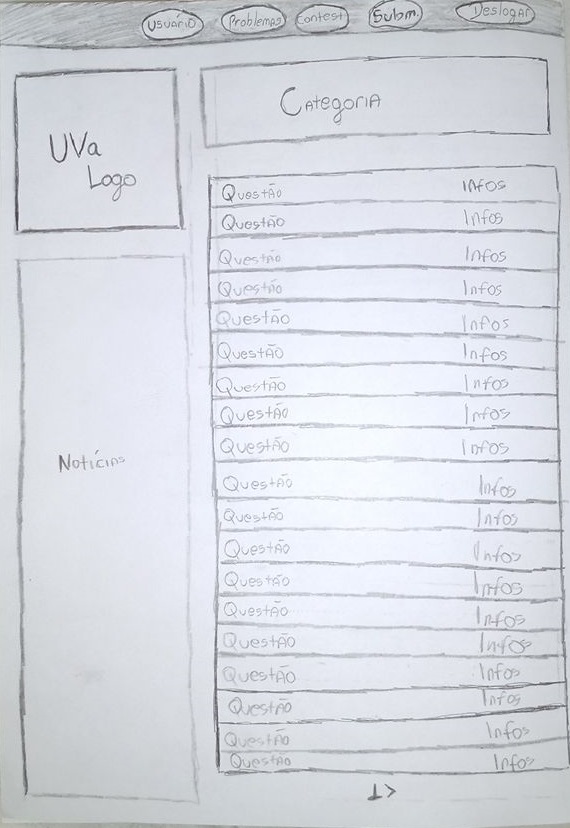 Usuário Problemas Contest Subm. Deslogar
UVa
Logo
Categoria
Questão Infos
Questão Infos
Questão Infos
Questão Infos
Questão Infos
Questão Infos
Questão Infos
Questão Infos
Questão Infos
Notícias
Questão Infos
Questão Infos
Questão Infos
Questão Infos
Questão Infos
Questão Infos
Questão Infos
Questão Infos
Questão Infos
Questão Infos
1>